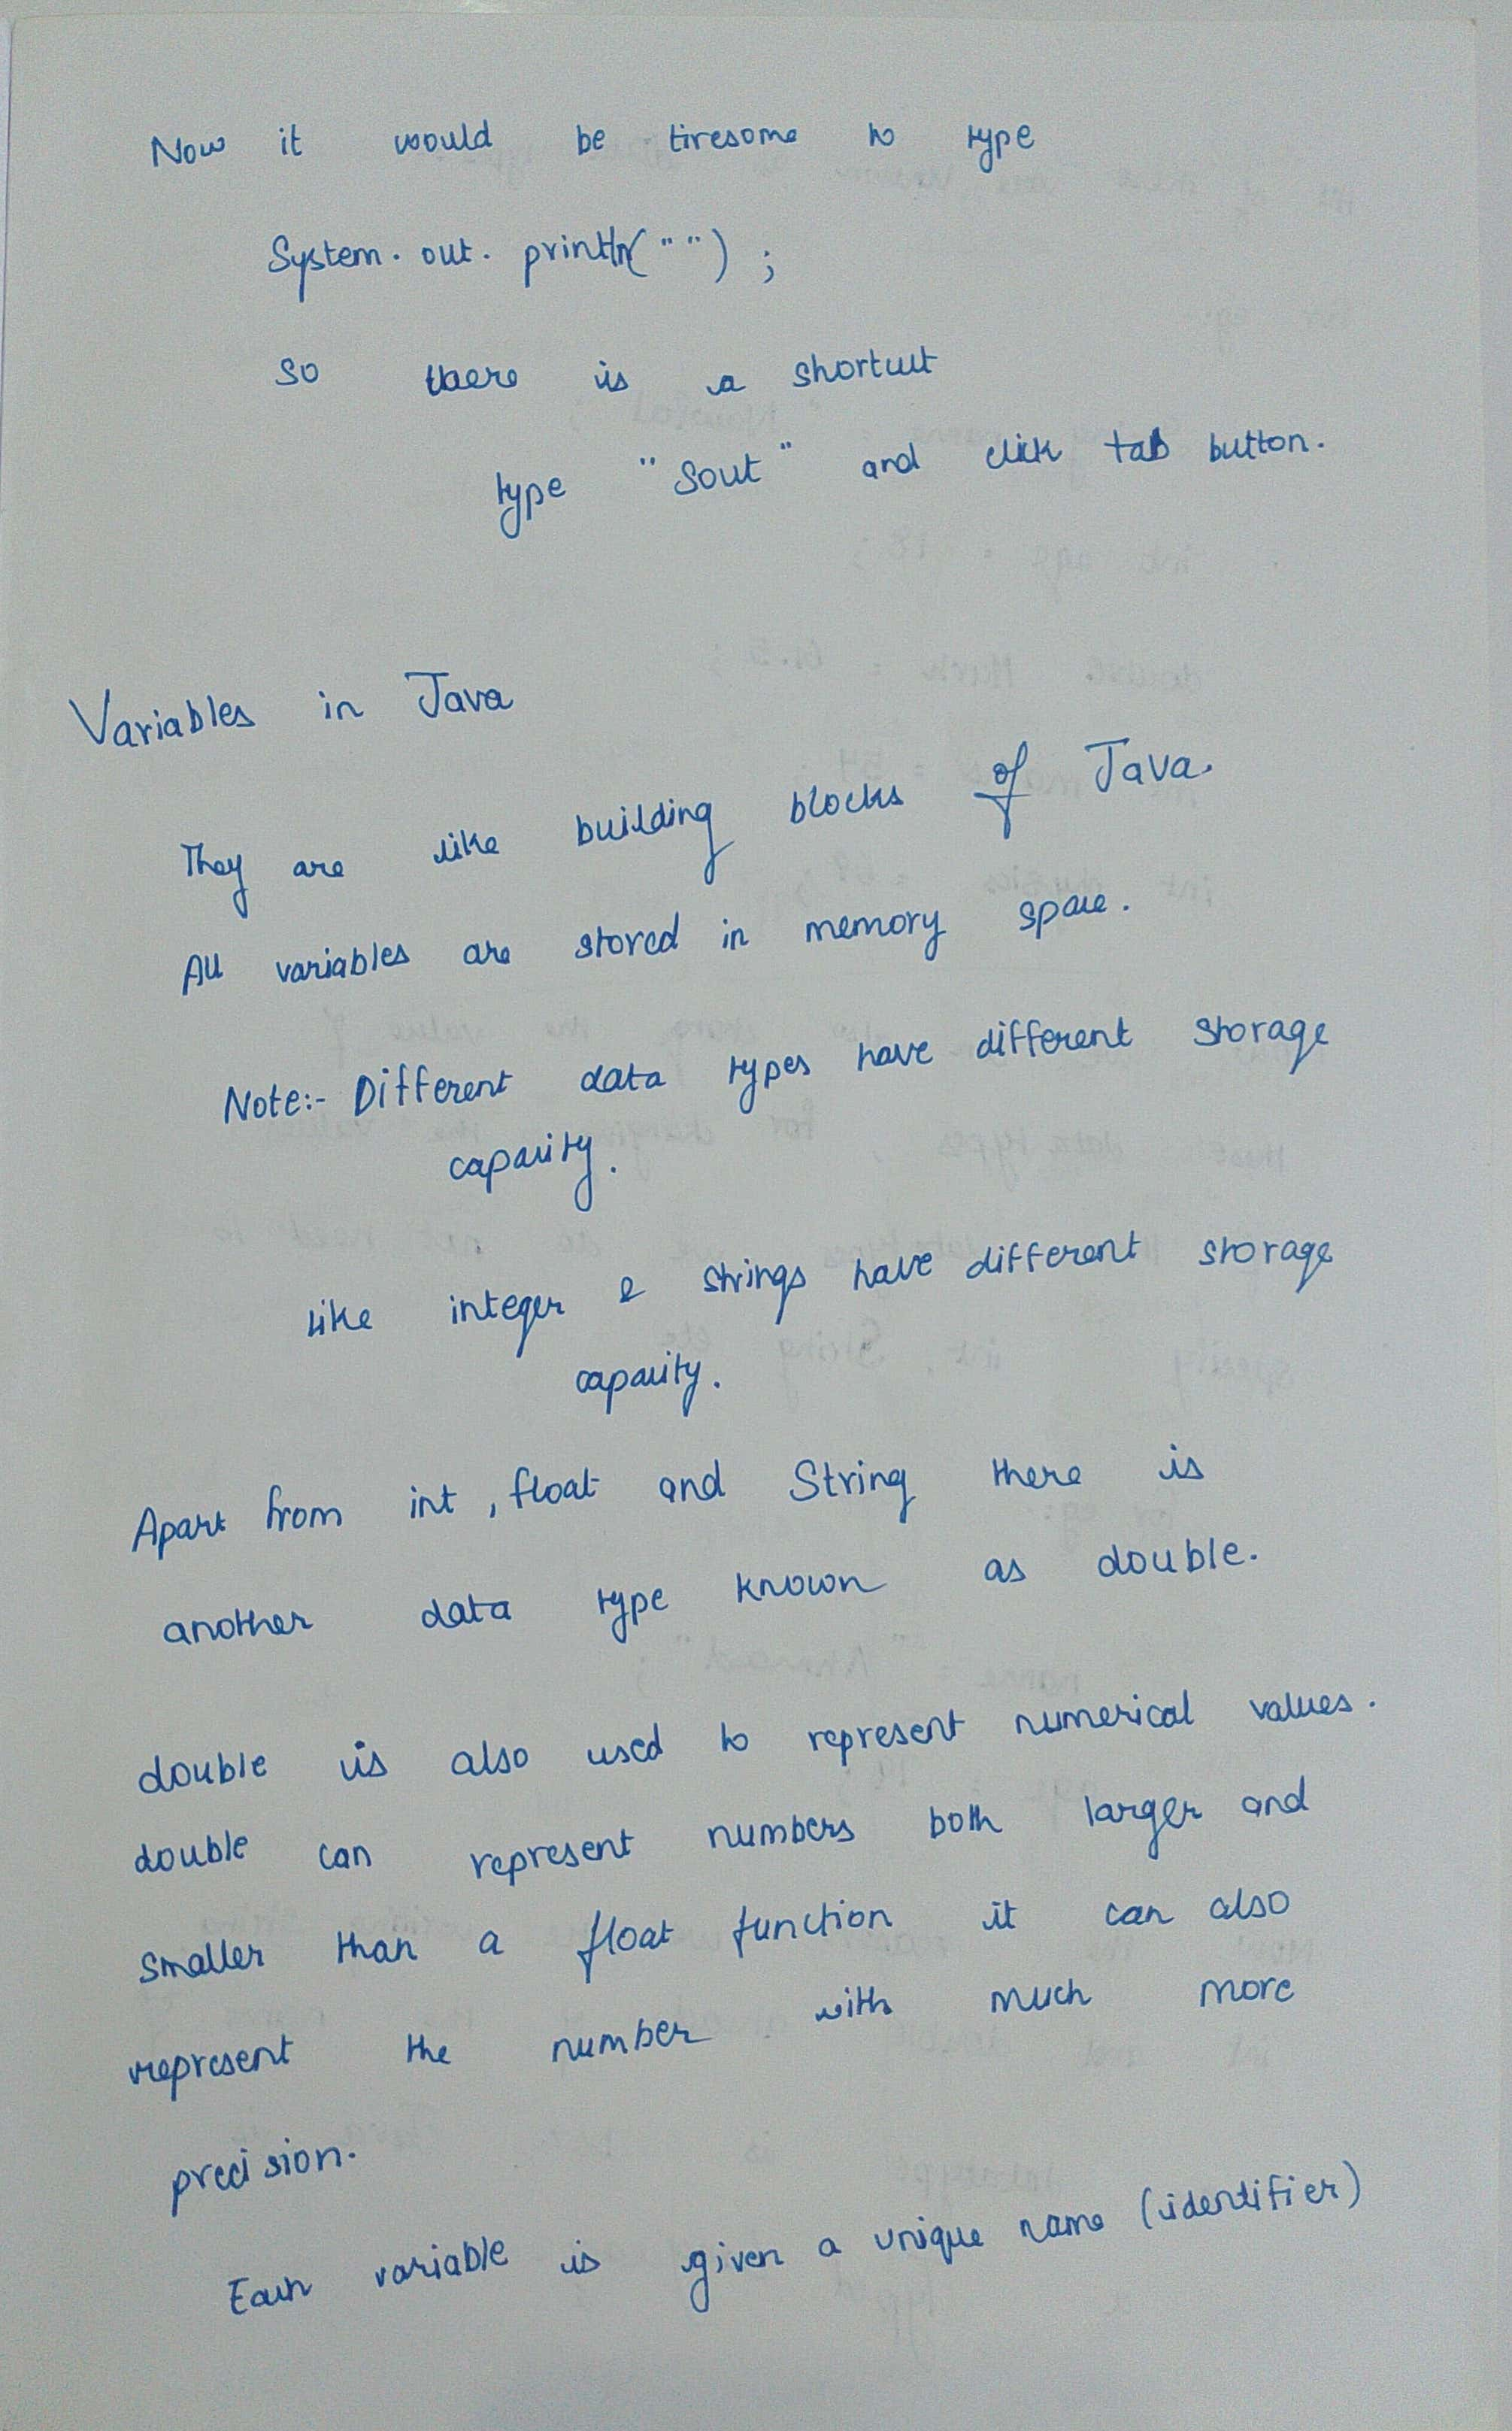 Now it would be tiresome to type
System.out.println("");
so there is a shortcut
type "Sout" and click tab button.
Variables in Java
They are like building blocks of Java.
All variables are stored in memory space.
Note:- Different data types have different storage
capacity.
like integer & strings have different storage
capacity.
Apart from int, float and String there is
another data type known as double.
double is also used to represent numerical values.
double can represent numbers both larger and
smaller than a float function it can also
represent the number with much more
precision.
Each variable is given a unique name (identifier)